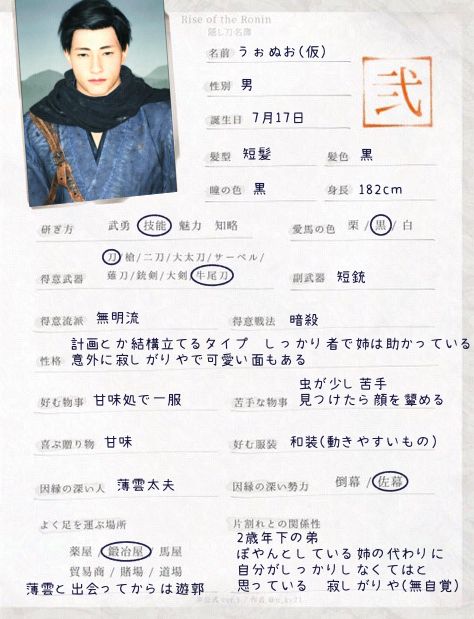 Rise of the Ronin
隠し刀名簿
名前 うぉぬお(仮)
性別 男
誕生日 7月17日
弐
髪型 短髪 髪色 黒
瞳の色 黒 身長 182cm
研ぎ方 武勇 技能 魅力 知略
愛馬の色 栗 / 黒 / 白
得意武器 刀/槍/二刀/大太刀/サーベル/
薙刀/銃剣/大剣/牛尾刀
副武器 短銃
得意流派 無明流
得意戦法 暗殺
性格 計画とか結構立てるタイプ しっかり者で姉は助かっている
意外に寂しがりやで可愛い面もある
好む物事 甘味処で一服
苦手な物事 虫が少し苦手
見つけたら顔を顰める
喜ぶ贈り物 甘味
好む服装 和装(動きやすいもの)
因縁の深い人 薄雲太夫
因縁の深い勢力 倒幕 / 佐幕
よく足を運ぶ場所
薬屋 / 鍛冶屋 / 馬屋
貿易商 / 賭場 / 道場
薄雲と出会ってからは遊郭
片割れとの関係性
2歳年下の弟
ぽやんとしている姉の代わりに
自分がしっかりしなくてはと
思っている 寂しがりや(無自覚)